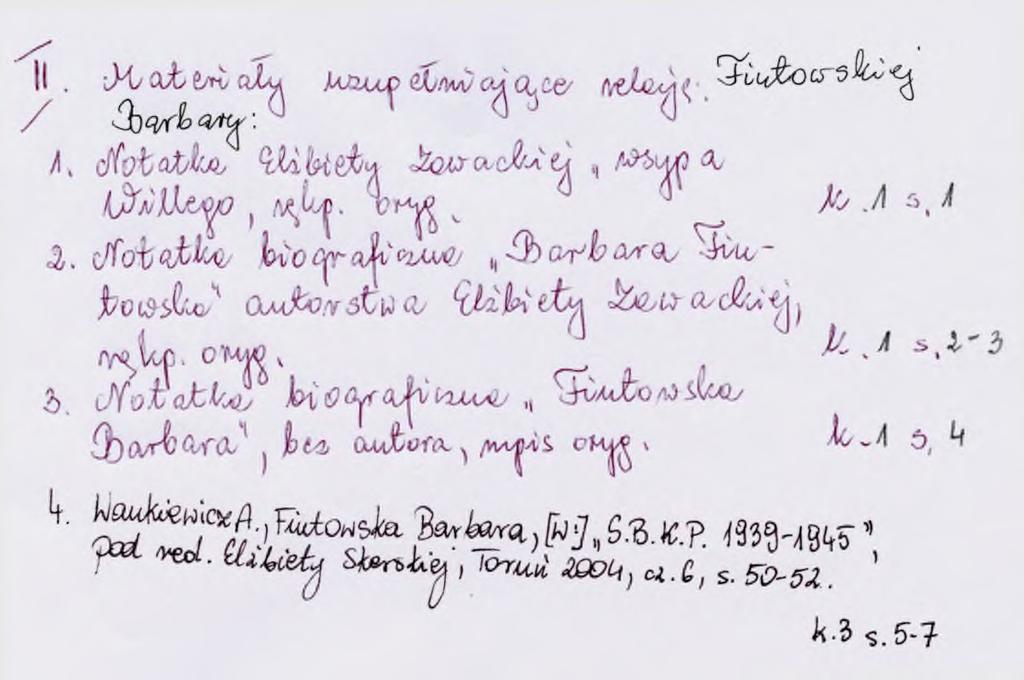 II. Materiały uzupełniające relację: Fiutowskiej
Barbary:
1. Notatka Elżbiety Zawackiej „wsypa
Willego, rękp. oryg. k. 1 s. 1
2. Notatka biograficzna „Barbara Fiu-
towska" autorstwa Elżbiety Zawackiej,
rękp. oryg. k. 1 s. 2-3
3. Notatka biograficzna „Fiutowska
Barbara", bez autora, mpis oryg. k. 1 s. 4
4. Wankiewicz A., Fiutowska Barbara, [W:] „S.B.K.P. 1939-1945",
pod red. Elżbiety Skerskiej, Toruń 2004, cz. 6, s. 50-52.
k.3 s. 5-7